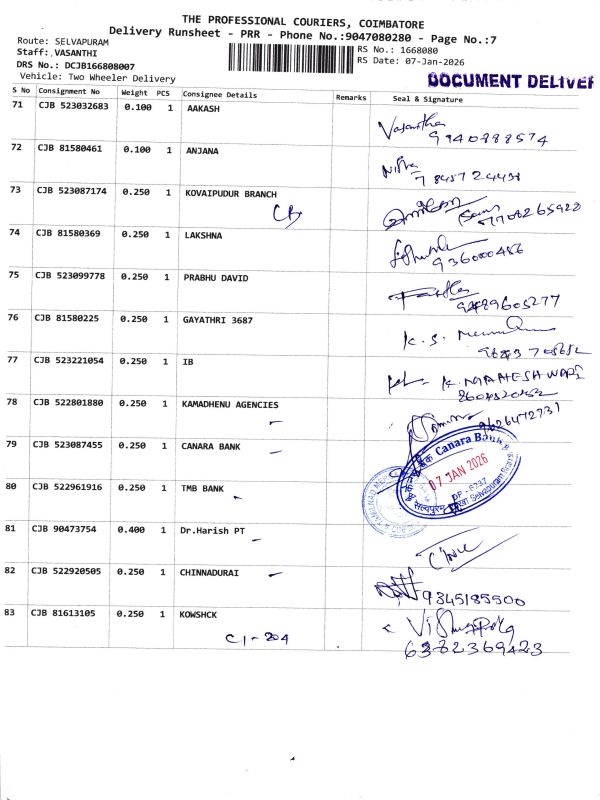 THE PROFESSIONAL COURIERS, COIMBATORE
Delivery Runsheet - PRR - Phone No.:9047080280 - Page No.:7
Route: SELVAPURAM
RS No.: 1668080
Staff: VASANTHI
RS Date: 07-Jan-2026
DRS No.: DCJB166808007
Vehicle: Two Wheeler Delivery
DOCUMENT DELIVER
S No Consignment No Weight PCS Consignee Details Remarks Seal & Signature
71 CJB 523032683 0.100 1 AAKASH
Vasantha
9940888574
72 CJB 81580461 0.100 1 ANJANA
Nisha
73 CJB 523087174 0.250 1 KOVAIPUDUR BRANCH
CB
7708265928
74 CJB 81580369 0.250 1 LAKSHNA
936000456
75 CJB 523099778 0.250 1 PRABHU DAVID
76 CJB 81580225 0.250 1 GAYATHRI 3687
K. S.
77 CJB 523221054 0.250 1 IB
K. MAHESHWARI
78 CJB 522801880 0.250 1 KAMADHENU AGENCIES
9626472731
79 CJB 523087455 0.250 1 CANARA BANK
Canara Bank
07 JAN 2026
80 CJB 522961916 0.250 1 TMB BANK
81 CJB 90473754 0.400 1 Dr.Harish PT
82 CJB 522920505 0.250 1 CHINNADURAI
9345185500
83 CJB 81613105 0.250 1 KOWSHCK
C1-204
6382369423